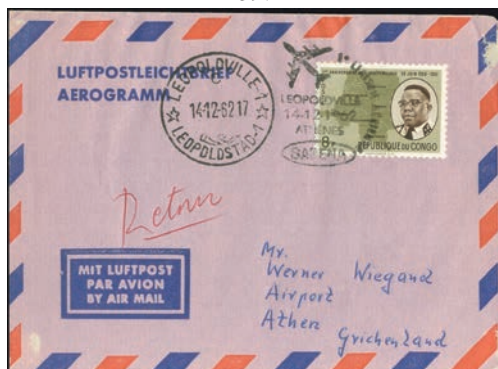 LUFTPOSTLEICHTBRIEF
AEROGRAMM
LEOPOLDVILLE-1
14-12-62 17
LEOPOLDSTAD-1
LEOPOLDVILLE
14-12-1962
ATHENES
SABENA
8F
REPUBLIQUE DU CONGO
Retour
MIT LUFTPOST
PAR AVION
BY AIR MAIL
Mr.
Werner Wiegand
Airport
Athen
Grichenland